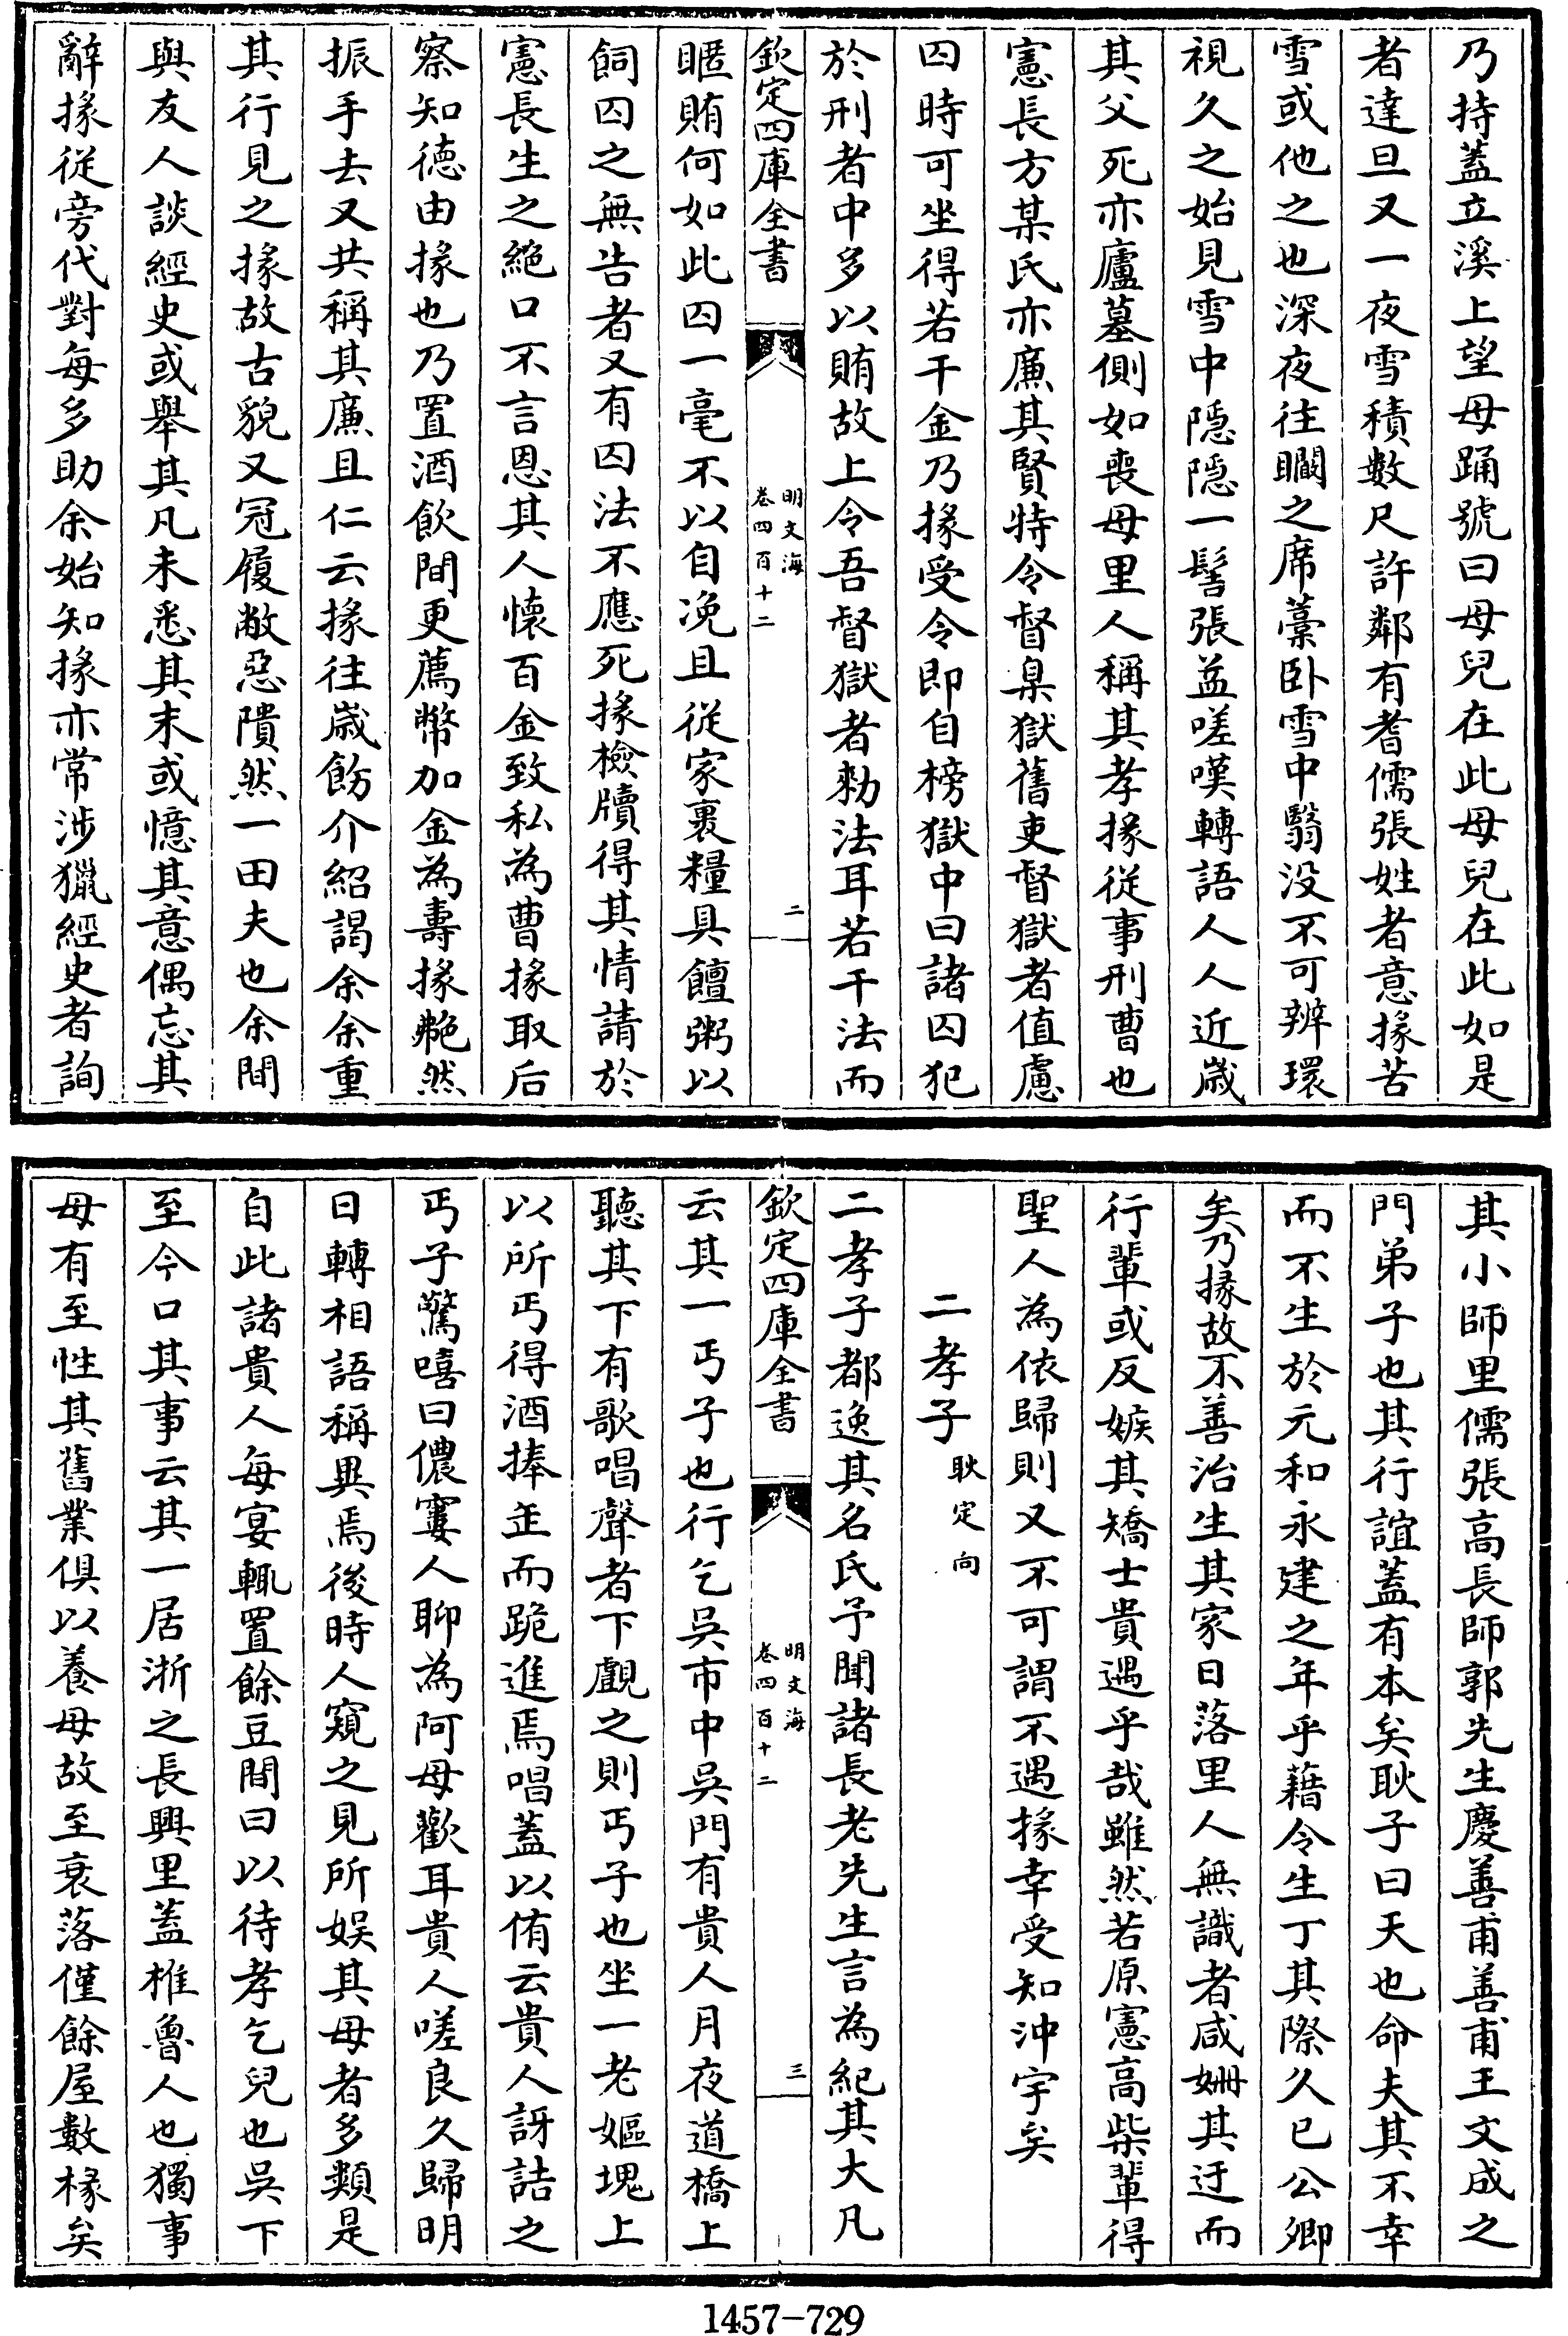 乃持蓋立溪上望母踊號曰母兒在此母兒在此如是
者達旦又一夜雪積數尺許鄰有耆儒張姓者意掾苦
雪或他之也深夜往瞷之席藁卧雪中翳没不可辨環
視久之始見雪中隠隠一髻張益嗟嘆轉語人人近嵗
其父死亦廬墓側如喪母里人稱其孝掾從事刑曹也
憲長方某氏亦廉其賢特令督臬獄舊吏督獄者值慮
囚時可坐得若干金乃掾受令即自榜獄中曰諸囚犯
於刑者中多以賄故上令吾督獄者勑法耳若干法而
欽定四庫全書
明文海
卷四百十二
二
眶賄何如此囚一毫不以自凂且從家裹糧具饘粥以
飼囚之無告者又有囚法不應死掾檢牘得其情請於
憲長生之絶口不言恩其人懷百金致私為曹掾取后
察知德由掾也乃置酒飲間更薦幣加金為壽掾艴然
振手去又共稱其廉且仁云掾往嵗飭介紹謁余余重
其行見之掾故古貌又冠履敝惡隤然一田夫也余間
與友人談經史或舉其凡未悉其末或憶其意偶忘其
辭掾從旁代對每多助余始知掾亦常涉獵經史者詢
其小師里儒張高長師郭先生慶善甫善甫王文成之
門弟子也其行誼蓋有本矣耿子曰天也命夫其不幸
而不生於元和永建之年乎藉令生丁其際久已公卿
矣乃掾故不善治生其家日落里人無識者咸姍其迂而
行輩或反嫉其矯士貴遇乎哉雖然若原憲高柴輩得
聖人為依歸則又不可謂不遇掾幸受知沖宇矣
二孝子 耿定向
二孝子都逸其名氏予聞諸長老先生言為紀其大凡
欽定四庫全書
明文海
卷四百十二
三
云其一丐子也行乞吳市中吳門有貴人月夜道橋上
聽其下有歌唱聲者下觀之則丐子也坐一老嫗塊上
以所丐得酒捧缶而跪進焉唱蓋以侑云貴人訝詰之
丐子驚嘻曰儂窶人聊為阿母歡耳貴人嗟良久歸明
日轉相語稱異焉後時人窺之見所娱其母者多類是
自此諸貴人每宴輒置餘豆間曰以待孝乞兒也吳下
至今口其事云其一居浙之長興里蓋椎魯人也獨事
母有至性其舊業俱以養母故至衰落僅餘屋數椽矣
1457-729